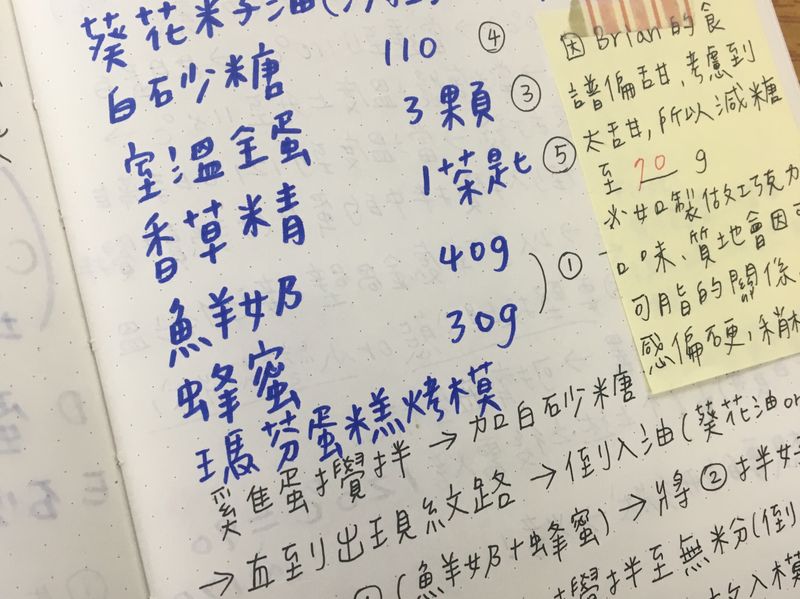 葵花籽油(
白砂糖 110 ④
室溫全蛋 3顆 ③
香草精 1茶匙 ⑤
鮮奶 40g
蜂蜜 30g ①
瑪芬蛋糕烤模
雞蛋攪拌→加白砂糖
→直到出現紋路→倒入油(葵花油or
①(鮮奶+蜂蜜)→將②拌好
攪拌至無粉(倒
放入模
因Brian的食
譜偏甜,考慮到
太甜,所以減糖
至 70 g
※如製做巧克力
口味、質地會因可
可脂的關係
感偏硬,稍